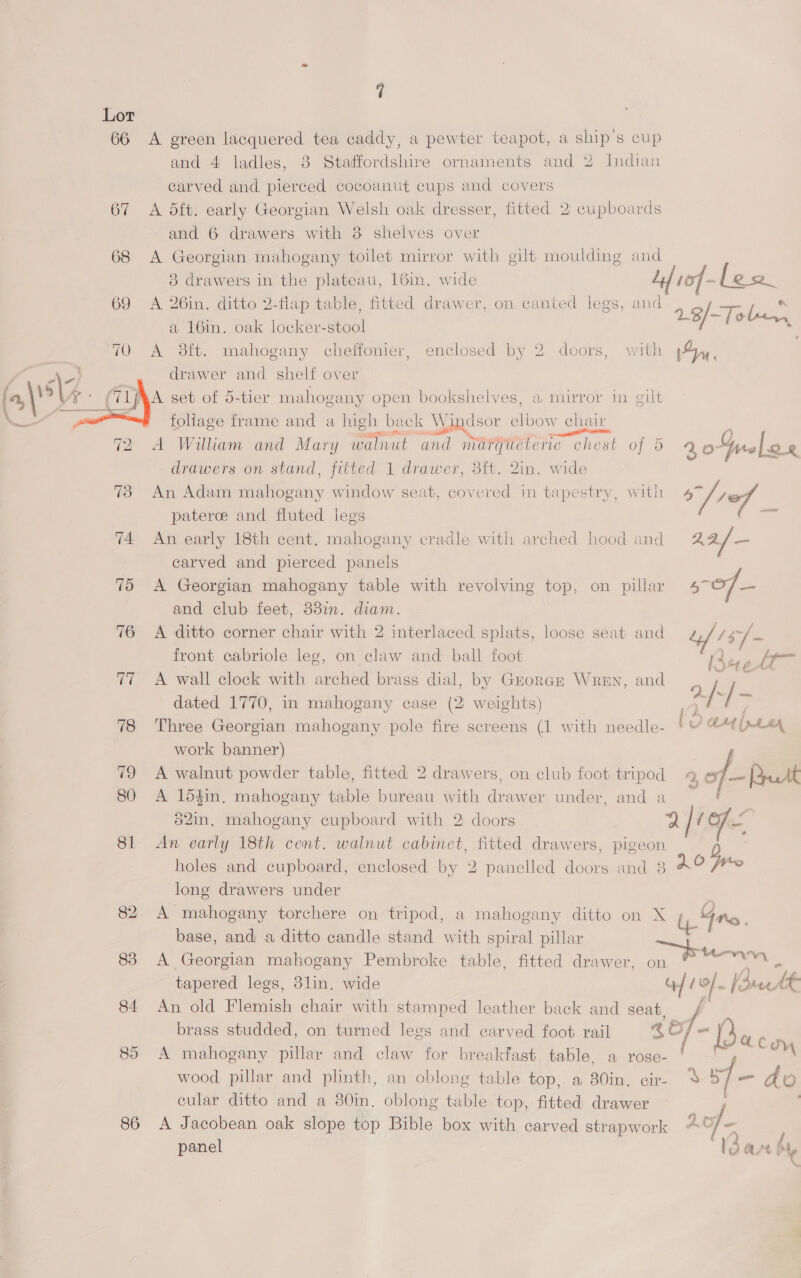 7
Lot
66 A green lacquered tea caddy, a pewter teapot, a ship's cup
and 4 ladles, 3 Staffordshire ornaments and 2 Indian
carved and pierced cocoanut cups and covers
67 A 5ft. early Georgian Welsh oak dresser, fitted 2 cupboards
and 6 drawers with 3 shelves over
68 A Georgian mahogany toilet mirror with gilt moulding and
3 drawers in the plateau, 16in. wide 4/10/- Lee
69 A 26in. ditto 2-flap table, fitted drawer, on canted legs, and
a 16in. oak locker-stool 23/-
70 A 3ft. mahogany cheffonier, enclosed by 2 doors, with
drawer and shelf over
71 A set of 5-tier mahogany open bookshelves, a mirror in gilt
foliage frame and a high back Windsor elbow chair
72 A William and Mary walnut and marqueterie chest of 5 20 gns
drawers on stand, fitted 1 drawer, 3ft. 2in. wide
73 An Adam mahogany window seat, covered in tapestry, with
pateræ and fluted legs
74 An early 18th cent. mahogany cradle with arched hood and 22/-
carved and pierced panels
75 A Georgian mahogany table with revolving top, on pillar 50/-
and club feet, 33in. diam.
76 A ditto corner chair with 2 interlaced splats, loose seat and 4/15/-
front cabriole leg, on claw and ball foot Brett
77 A wall clock with arched brass dial, by George Wren, and
dated 1770, in mahogany case (2 weights) 2/-/-
78 Three Georgian mahogany pole fire screens (1 with needle-
work banner)
79 A walnut powder table, fitted 2 drawers, on club foot tripod Brett
80 A 15½in. mahogany table bureau with drawer under, and a
32in. mahogany cupboard with 2 doors 2/10/-
81 An early 18th cent. walnut cabinet, fitted drawers, pigeon
holes and cupboard, enclosed by 2 panelled doors and 3 20 gns
long drawers under
82 A mahogany torchere on tripod, a mahogany ditto on X 4 gns.
base, and a ditto candle stand with spiral pillar
83 A Georgian mahogany Pembroke table, fitted drawer, on
tapered legs, 31in. wide 4/10/- Brett
84 An old Flemish chair with stamped leather back and seat,
brass studded, on turned legs and carved foot rail 30/- Bacon
85 A mahogany pillar and claw for breakfast table, a rose-
wood pillar and plinth, an oblong table top, a 30in. cir- 35/- do
cular ditto and a 30in. oblong table top, fitted drawer
86 A Jacobean oak slope top Bible box with carved strapwork 20/-
panel Darby